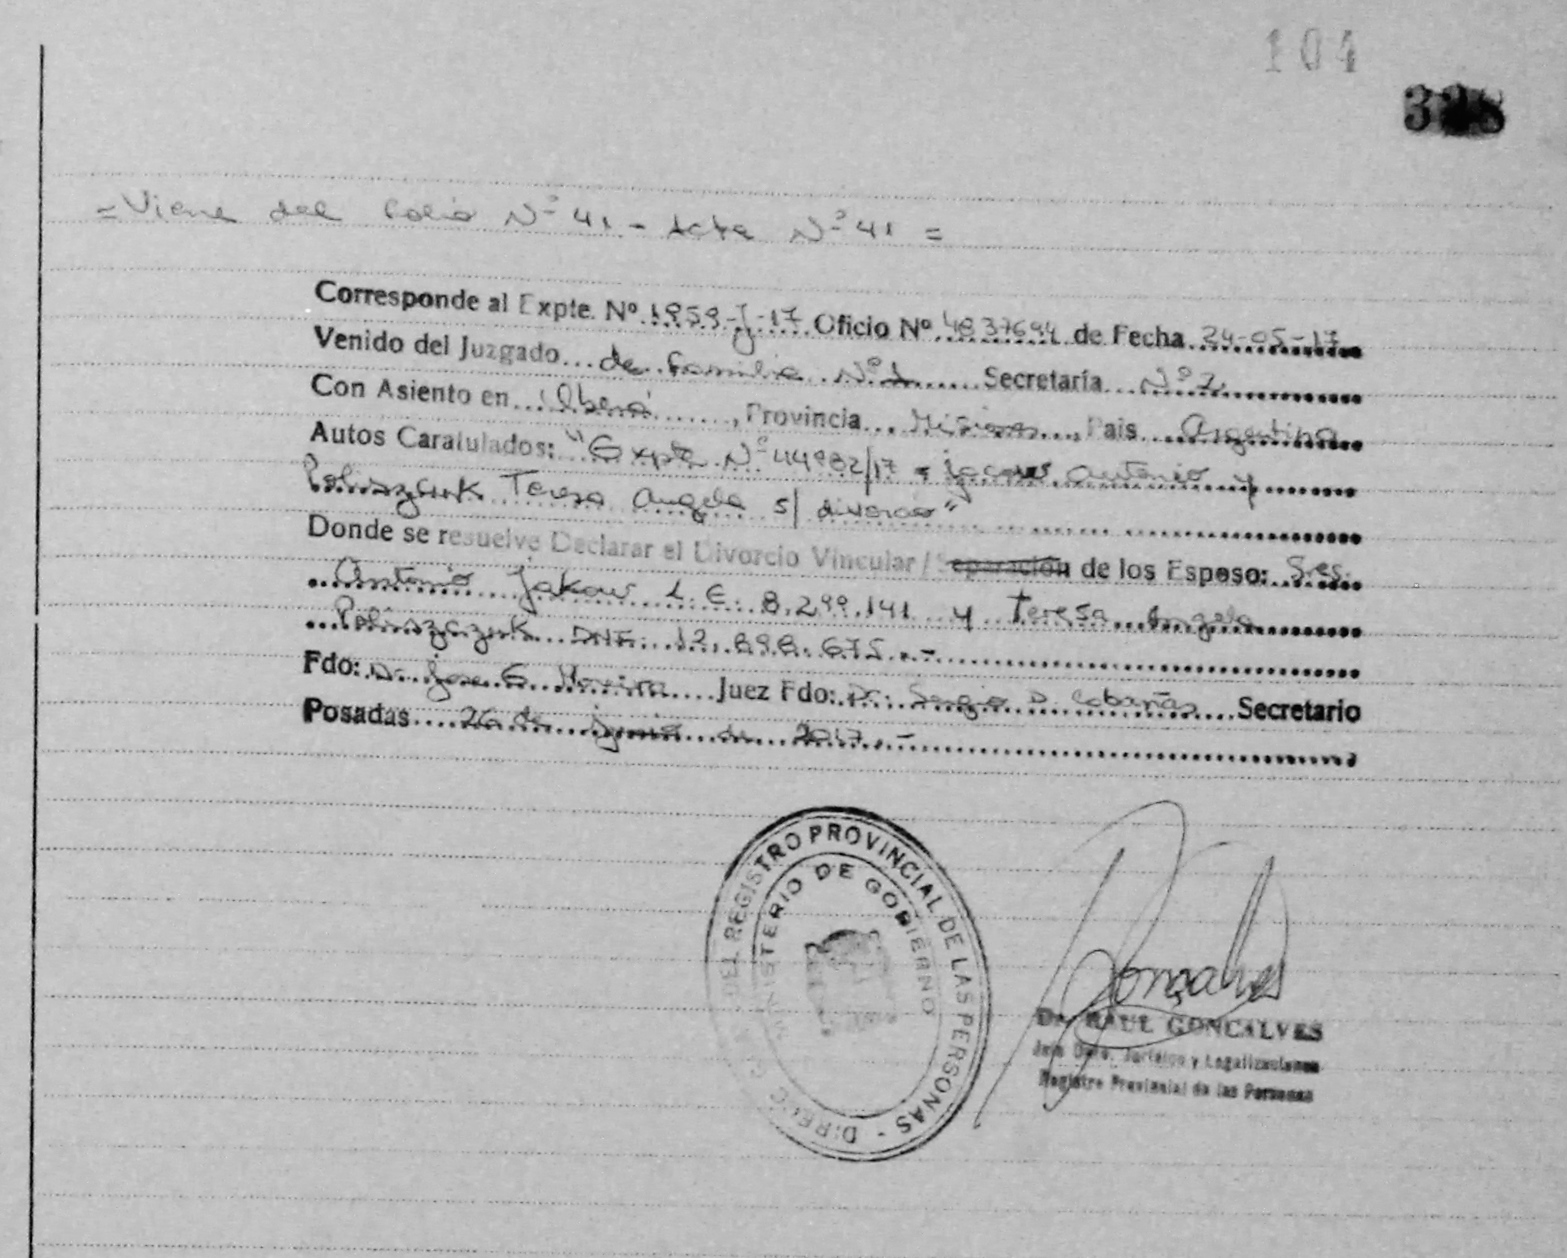 104
= Viene del folio Nº 41 - Acta Nº 41 =
Corresponde al Expte. Nº 1959-J-17 Oficio Nº 4837694 de Fecha 24-05-17
Venido del Juzgado de Familia Nº 1 Secretaría Nº 2
Con Asiento en Oberá, Provincia Misiones, Pais Argentina
Autos Caratulados: "Expte Nº 44982/17 - Jacow Antonio y
Poliszczuk Teresa Angela s/ divorcio"
Donde se resuelve Declarar el Divorcio Vincular / Separación de los Esposo: Sres.
Antonio Jakow L.E. 8.299.141 y Teresa Angela
Poliszczuk DNI: 12.898.675.-
Fdo: Dr. Jose G. Moreira Juez Fdo: Dr. Sergio D. Cabañas Secretario
Posadas 26 de junio de 2017.-
DEL REGISTRO PROVINCIAL DE LAS PERSONAS
MINISTERIO DE GOBIERNO
Gonçalves
Dr. RAUL GONCALVES
Jefe Dpto. Jurídico y Legalizaciones
Registro Provincial de las Personas